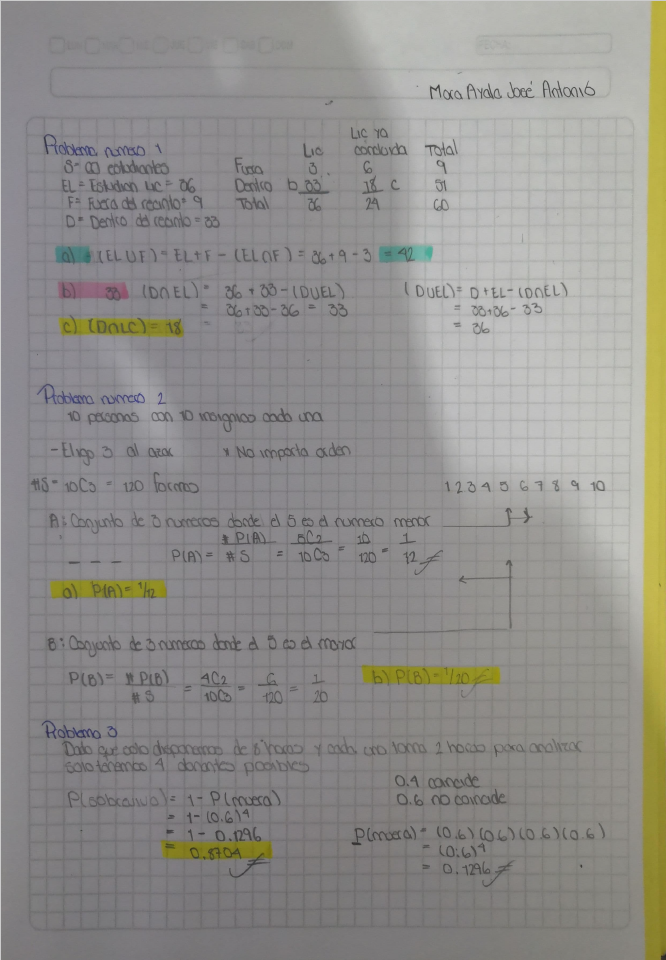 Mora Ayala José Antonio
Problema numero 1
S= 60 estudiantes
EL = Estudian Lic = 36
F= Fuera del recinto= 9
D= Dentro del recinto = 33
Lic Lic ya concluida Total
Fuera 3 6 9
Dentro b 33 18 c 51
Total 36 24 60
a) (EL U F) = EL + F - (EL ∩ F) = 36 + 9 - 3 = 42
b) 33 (D∩EL) = 36 + 33 - (DUEL)
= 36+33-36 = 33
(DUEL)= D+EL-(D∩EL)
= 33+36-33
= 36
c) (D∩LC) = 18
Problema numero 2
10 personas con 10 insignias cada una
- Eligo 3 al azar * No importa orden
#S = 10C3 = 120 formas
1 2 3 4 5 6 7 8 9 10
A: Conjunto de 3 numeros donde el 5 es el numero menor
_ _ _ P(A) = # P(A) / # S = 5C2 / 10C3 = 10 / 120 = 1 / 12
a) P(A) = 1/12
B: Conjunto de 3 numeros donde el 5 es el mayor
P(B) = # P(B) / # S = 4C2 / 10C3 = 6 / 120 = 1 / 20
b) P(B) = 1/20
Problema 3
Dado que solo disponemos de 8 horas y cada uno toma 2 horas para analizar
solo tenemos 4 donantes posibles
0.4 coincide
0.6 no coincide
P(sobreviva) = 1 - P(muera)
= 1-(0.6)⁴
= 1 - 0.1296
= 0.8704
P(muera) = (0.6)(0.6)(0.6)(0.6)
= (0.6)⁴
= 0.1296